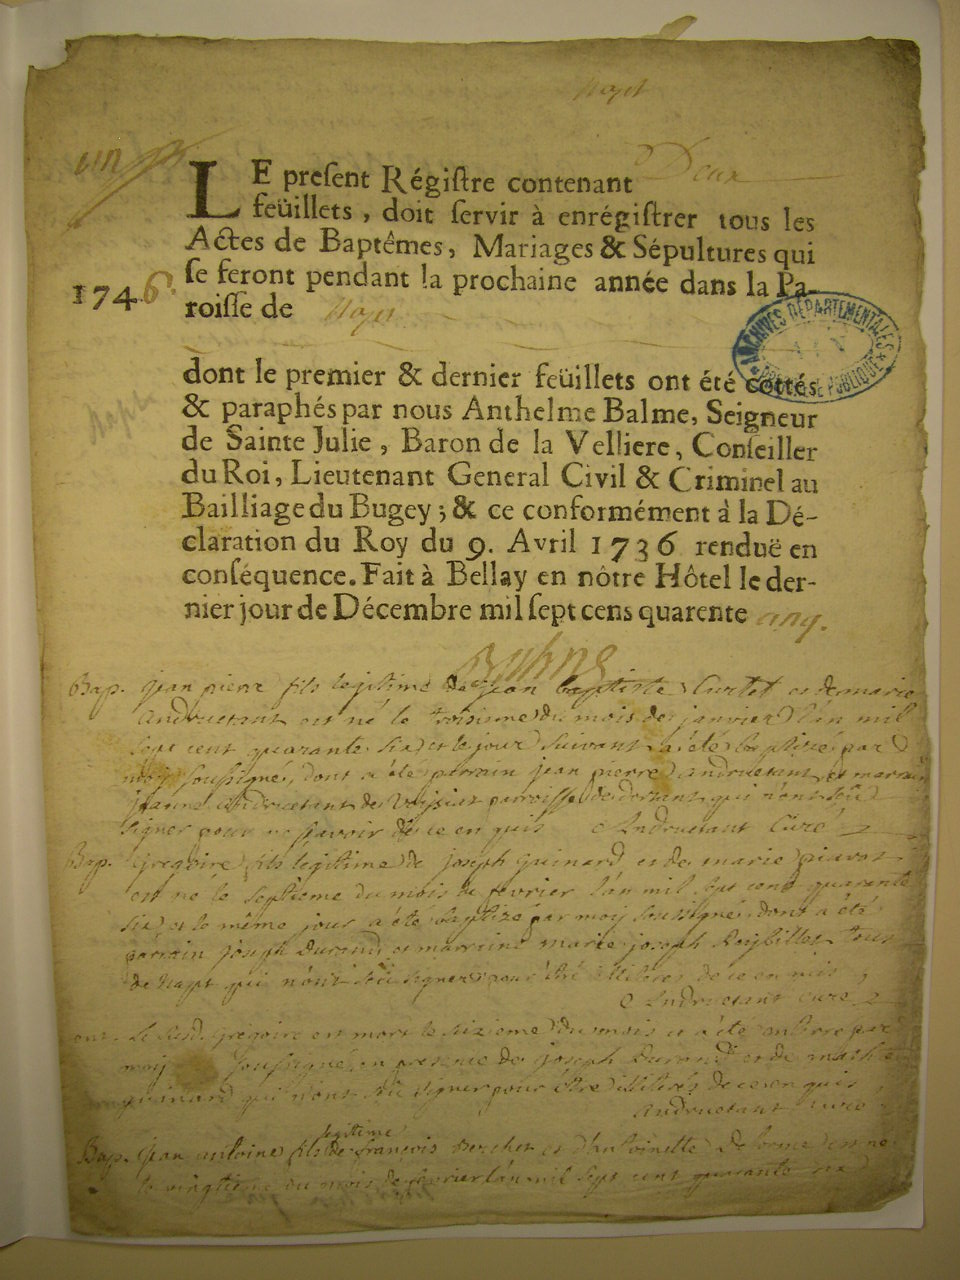 Napt
un
LE present Régistre contenant Deux
feüillets, doit servir à enrégistrer tous les
Actes de Baptêmes, Mariages & Sépultures qui
se feront pendant la prochaine année dans la Pa-
1746.
roisse de Napt
ARCHIVES DÉPARTEMENTALES
AIN
dont le premier & dernier feüillets ont été cottés
& paraphés par nous Anthelme Balme, Seigneur
de Sainte Julie, Baron de la Velliere, Conseiller
du Roi, Lieutenant General Civil & Criminel au
Bailliage du Bugey; & ce conformément à la Dé-
claration du Roy du 9. Avril 1736 renduë en
conséquence. Fait à Bellay en nôtre Hôtel le der-
nier jour de Décembre mil sept cens quarente cinq.
Bap. jean pierre fils legitime de jean baptiste Curtet et de marie
Andruetant est né le troisieme du mois de janvier l'an mil
sept cent quarante six et le jour suivant a été baptisé par
moy soussigné, dont a été parrain jean pierre andruetant et marraine
jeanne andruetant de paroisse de dortant qui n'ont sçu
signer pour ne sçavoir de ce en quis Andruetant Curé
Bap. Gregoire fils légitime de joseph guinard et de marie
est né le septieme du mois de fevrier l'an mil sept cent quarante
six et le même jour a été baptizé par moy soussigné, dont a été
parrain joseph Durand et marraine marie joseph tous
de Napt qui n'ont sçu signer pour étre illiteres de ce en quis
Andruetant Curé
ent. Le susd. Gregoire est mort le du mois et a été enterré par
moy soussigné en presence de joseph Durand et de
guinard qui n'ont sçu signer pour étre illiterés de ce en quis
Andruetant Curé
Bap. jean antoine fils legitime de françois Berchet et d'Antoinette Delorme est né
le vingtieme du mois de fevrier l'an mil sept cent quarante six